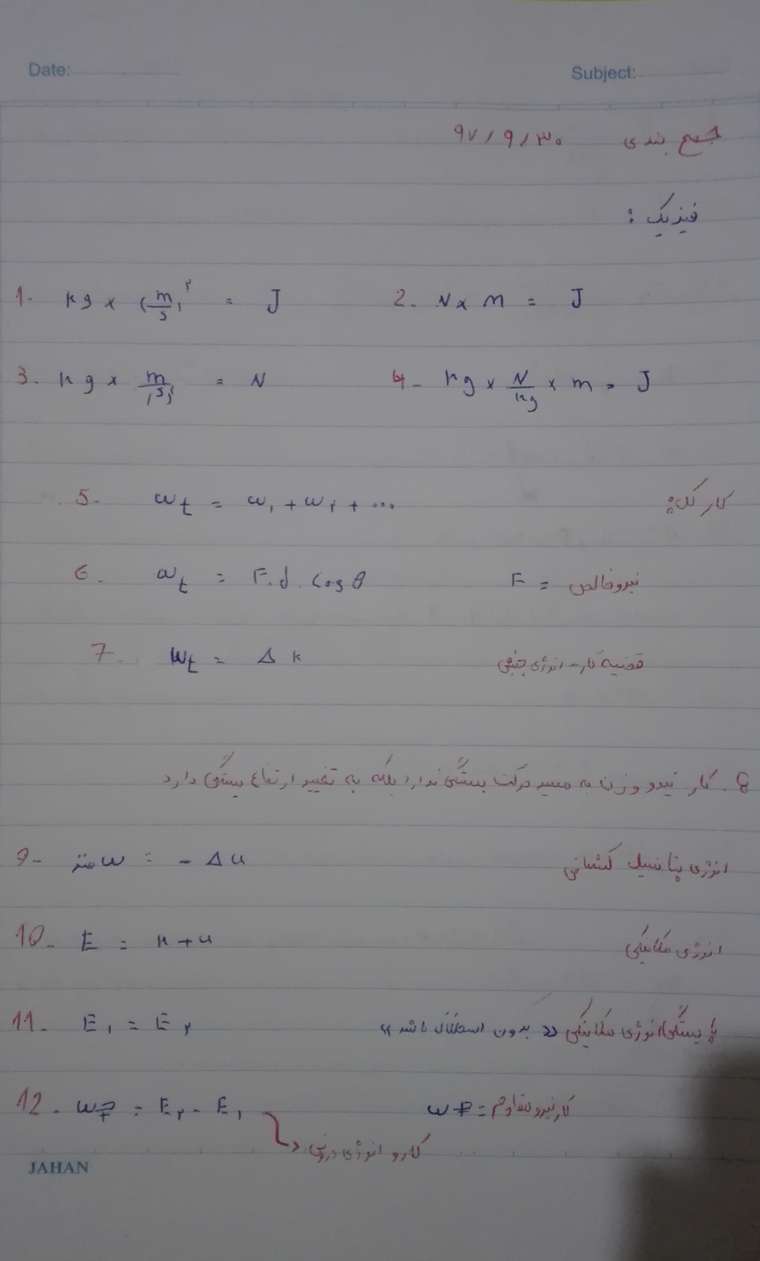 Date: Subject:
جمع بندی ۹۷/۹/۳۰
فیزیک :
1. kg × (m/s)^۲ = J 2. N × m = J
3. kg × m/(s)^۲ = N 4- kg × N/kg × m = J
5. W_t = W_۱ + W_۲ + ... کار کل:
6. W_t = F.d.cosθ F = نیرو خالص
7. W_t = Δk قضیه کار - انرژی جنبشی
8. کار نیرو وزن به مسیر حرکت بستگی ندارد بلکه به تغییر ارتفاع بستگی دارد
9- W فنر = - Δu انرژی پتانسیل کشسانی
10- E = k + u انرژی مکانیکی
11. E_۱ = E_۲ پایستگی انرژی مکانیکی «بدون اصطکاک باشد»
12. W_f = E_۲ - E_۱ W_f = کار نیرو مقاوم
کار و انرژی درونی
JAHAN